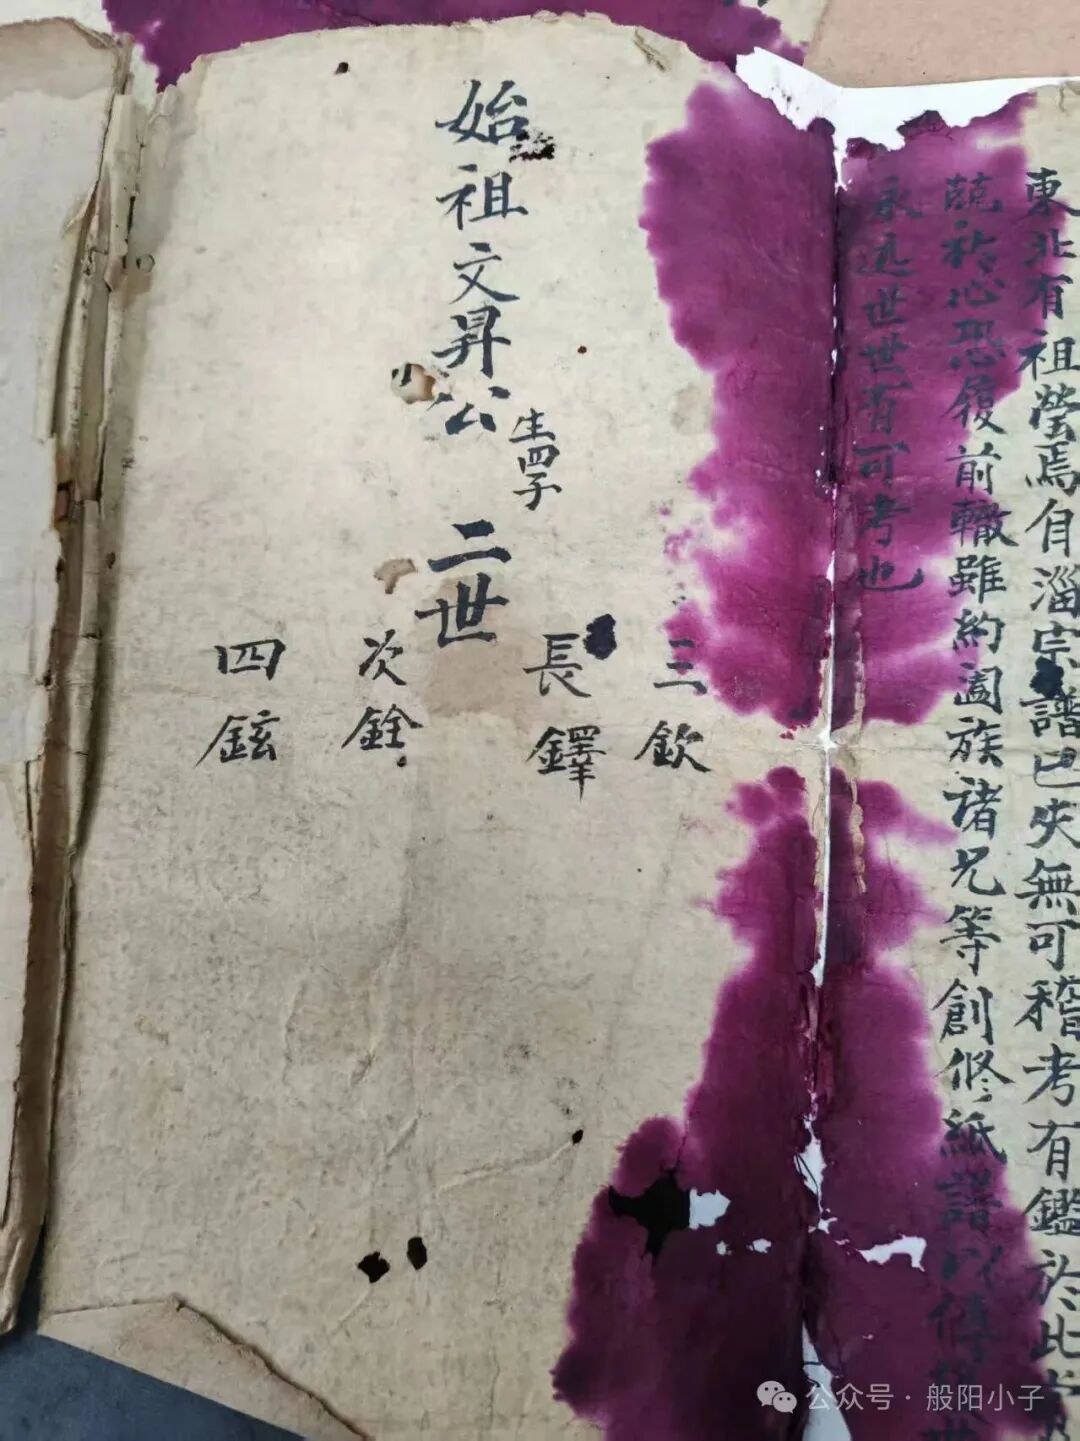 東北有祖塋焉自淄宗譜已失無可稽考有鑑於此
於心恐復前轍雖約闔族諸兄等創修紙譜以傳
永远世世皆可考也
始祖文昇公
生四子
二世
三欽
長鐸
次銓
四鉉
公众号·般阳小子